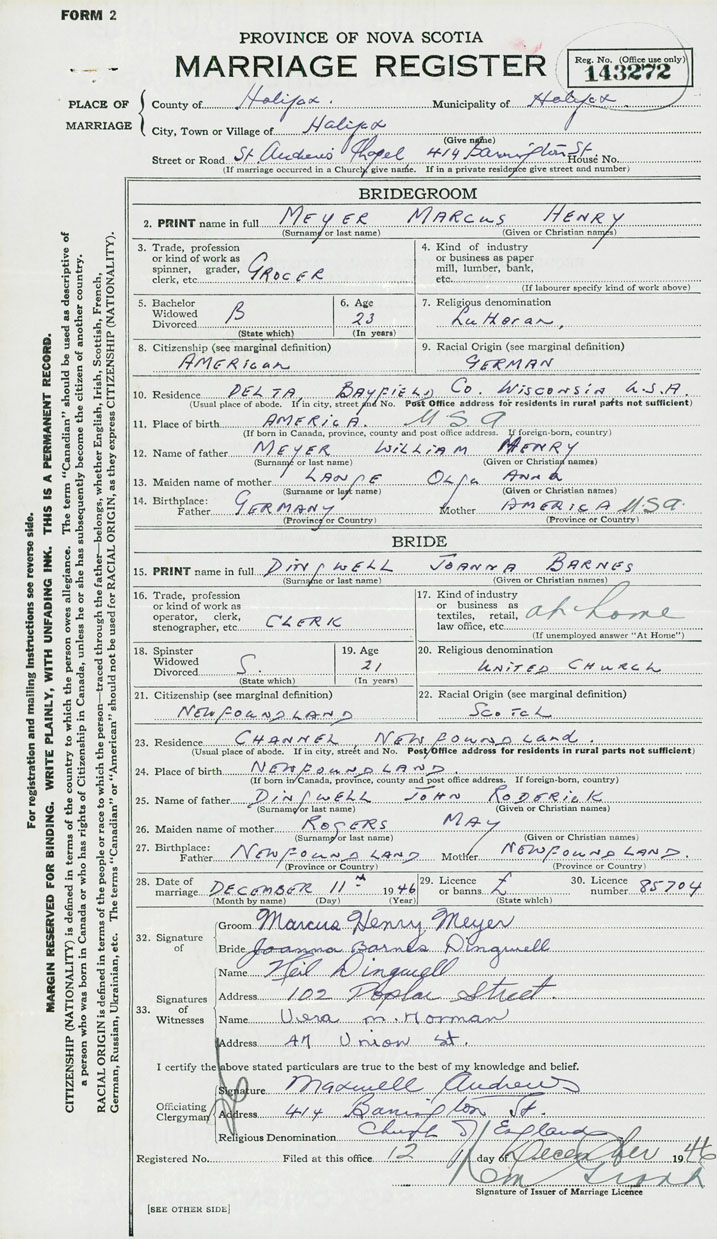 FORM 2
PROVINCE OF NOVA SCOTIA
MARRIAGE REGISTER
Reg. No. (Office use only)
143272
PLACE OF MARRIAGE
County of Halifax. Municipality of Halifax
City, Town or Village of Halifax
(Give name)
Street or Road St Andrews Chapel 414 Barrington St House No.
(If marriage occurred in a Church give name. If in a private residence give street and number)
BRIDEGROOM
2. PRINT name in full MEYER MARCUS HENRY
(Surname or last name) (Given or Christian names)
3. Trade, profession or kind of work as spinner, grader, clerk, etc. GROCER
4. Kind of industry or business as paper mill, lumber, bank, etc.
(If labourer specify kind of work above)
5. Bachelor Widowed Divorced B
(State which)
6. Age 23
(In years)
7. Religious denomination
Lutheran,
8. Citizenship (see marginal definition)
AMERICAN
9. Racial Origin (see marginal definition)
GERMAN
10. Residence DELTA, BAYFIELD Co. WISCONSIN U.S.A.
(Usual place of abode. If in city, street and No. Post Office address for residents in rural parts not sufficient)
11. Place of birth AMERICA. USA
(If born in Canada, province, county and post office address. If foreign-born, country)
12. Name of father MEYER WILLIAM HENRY
(Surname or last name) (Given or Christian names)
13. Maiden name of mother LANGE OLGA ANNA
(Surname or last name) (Given or Christian names)
14. Birthplace: Father GERMANY Mother AMERICA USA.
(Province or Country) (Province or Country)
BRIDE
15. PRINT name in full DINGWELL JOANNA BARNES
(Surname or last name) (Given or Christian names)
16. Trade, profession or kind of work as operator, clerk, stenographer, etc. CLERK
17. Kind of industry or business as textiles, retail, law office, etc. at home
(If unemployed answer "At Home")
18. Spinster Widowed Divorced S.
(State which)
19. Age 21
(In years)
20. Religious denomination
UNITED CHURCH
21. Citizenship (see marginal definition)
NEWFOUNDLAND
22. Racial Origin (see marginal definition)
SCOTCH
23. Residence CHANNEL NEWFOUNDLAND.
(Usual place of abode. If in city, street and No. Post Office address for residents in rural parts not sufficient)
24. Place of birth NEWFOUNDLAND.
(If born in Canada, province, county and post office address. If foreign-born, country)
25. Name of father DINGWELL JOHN RODERICK
(Surname or last name) (Given or Christian names)
26. Maiden name of mother ROGERS MAY
(Surname or last name) (Given or Christian names)
27. Birthplace: Father NEWFOUNDLAND Mother NEWFOUNDLAND.
(Province or Country) (Province or Country)
28. Date of marriage DECEMBER 11th 1946
(Month by name) (Day) (Year)
29. Licence or banns. L
(State which)
30. Licence number 85704
32. Signature of
Groom Marcus Henry Meyer
Bride Joanna Barnes Dingwell
33. Signatures of Witnesses
Name Neil Dingwell
Address 102 Poplar Street.
Name Vera M. Morman
Address 47 Union St.
I certify the above stated particulars are true to the best of my knowledge and belief.
Officiating Clergyman
Signature Maxwell Andrews
Address 414 Barrington St.
Religious Denomination Church of England
Registered No. Filed at this office 12 day of December 1946
Signature of Issuer of Marriage Licence
[SEE OTHER SIDE]
For registration and mailing instructions see reverse side.
MARGIN RESERVED FOR BINDING. WRITE PLAINLY, WITH UNFADING INK. THIS IS A PERMANENT RECORD.
CITIZENSHIP (NATIONALITY) is defined in terms of the country to which the person owes allegiance. The term "Canadian" should be used as descriptive of
a person who was born in Canada or who has rights of Citizenship in Canada, unless he or she has subsequently become the citizen of another country.
RACIAL ORIGIN is defined in terms of the people or race to which the person—traced through the father—belongs, whether English, Irish, Scottish, French,
German, Russian, Ukrainian, etc. The terms "Canadian" or "American" should not be used for RACIAL ORIGIN, as they express CITIZENSHIP (NATIONALITY).